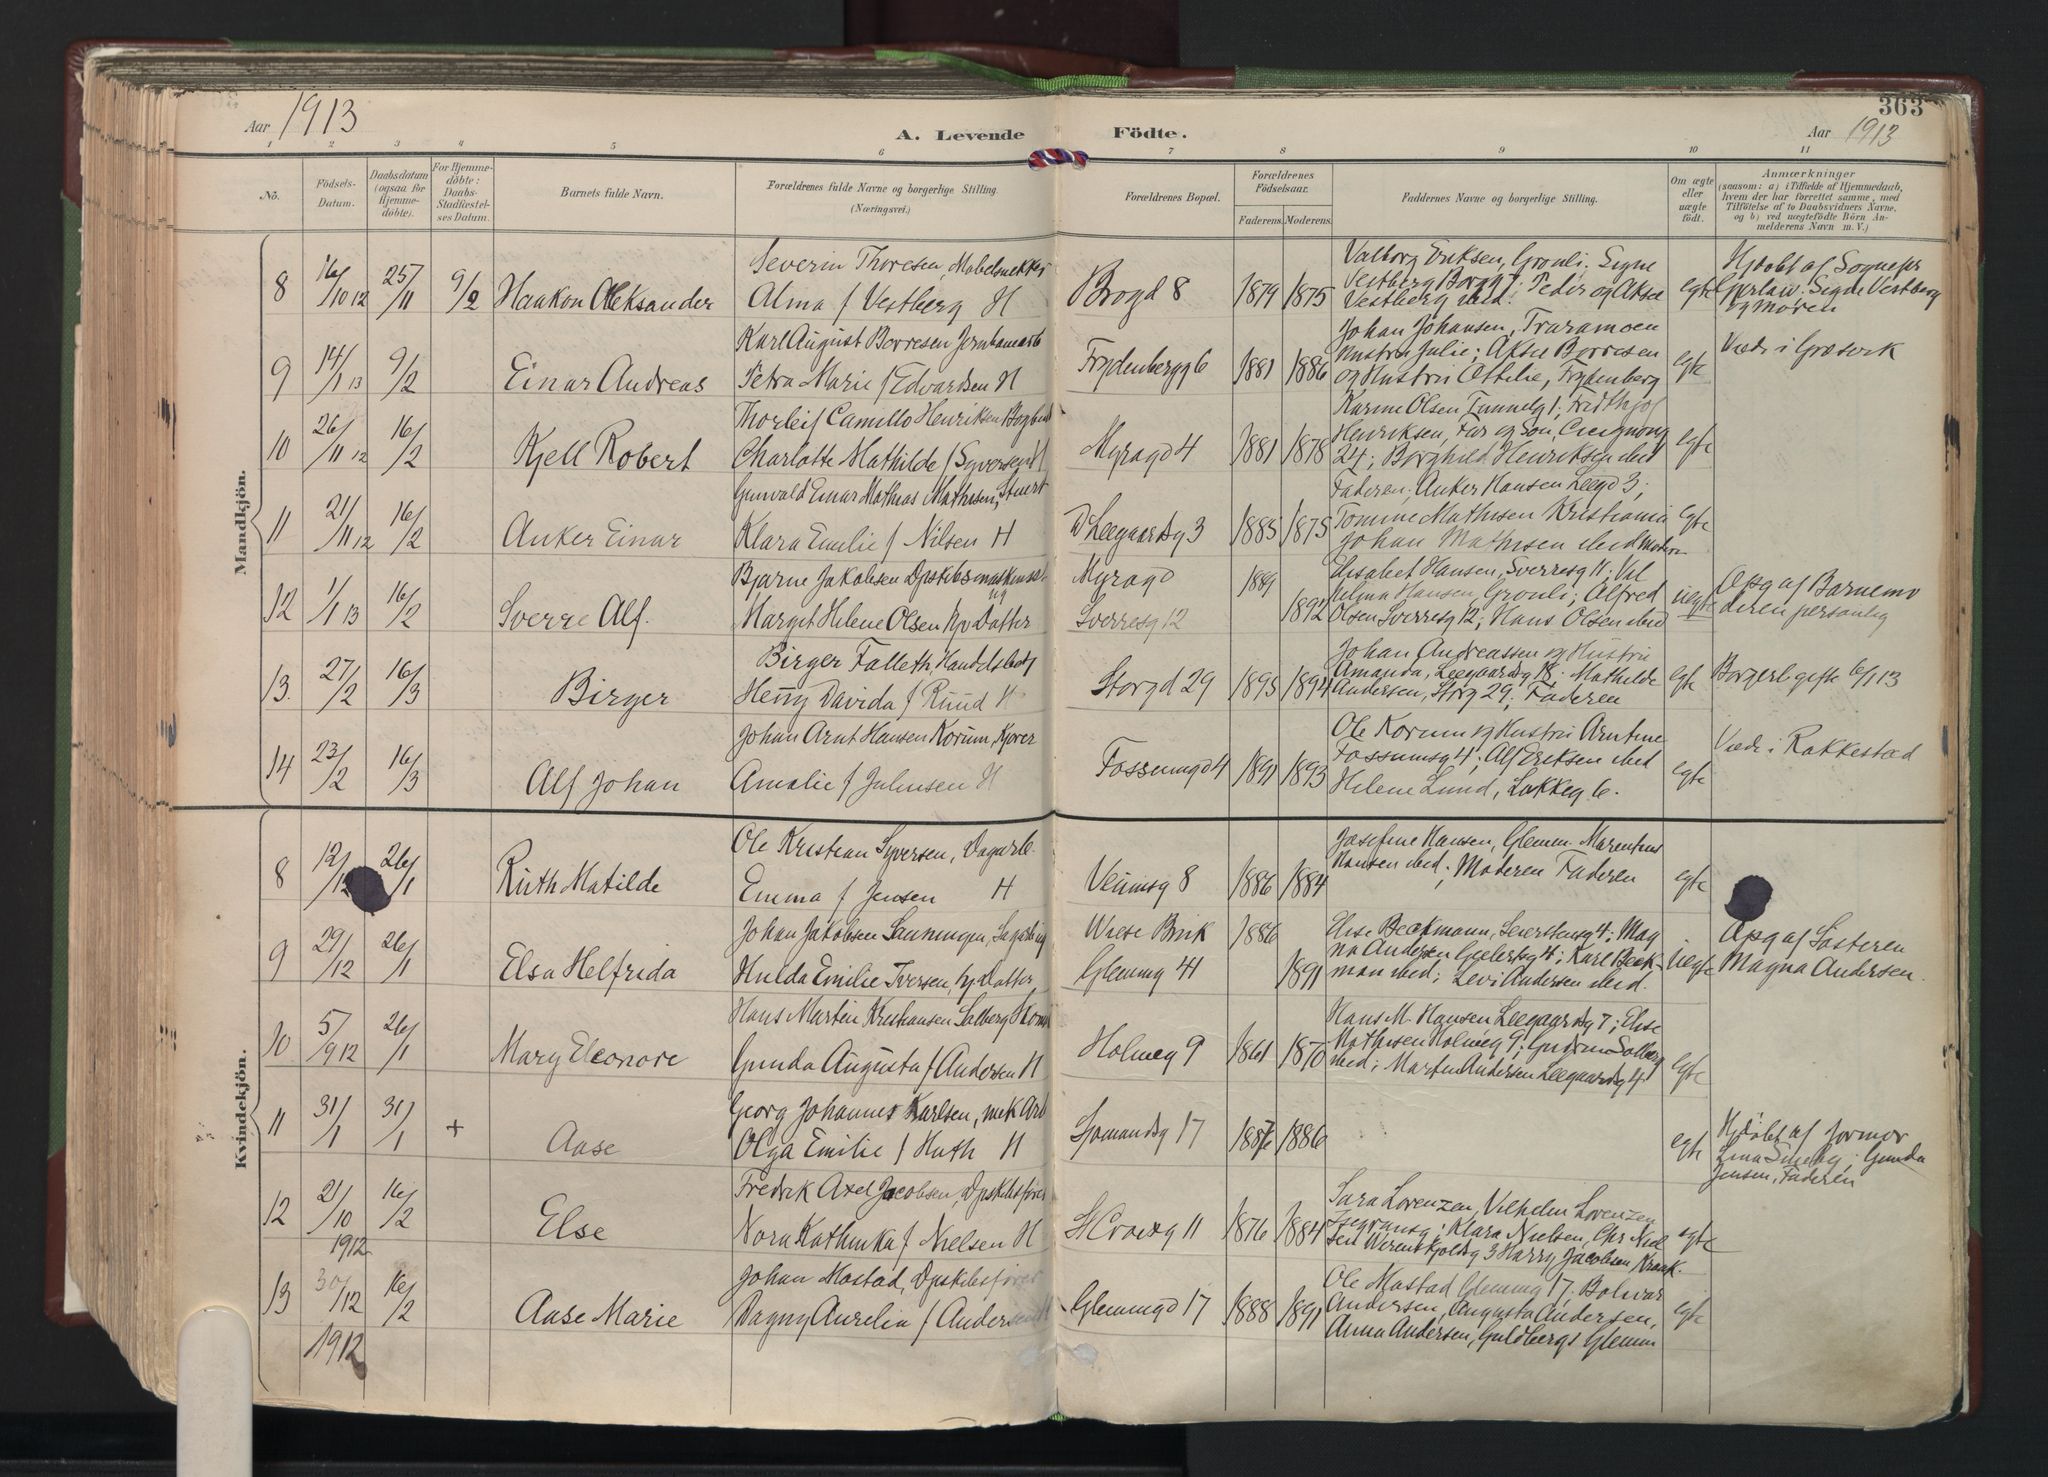 363
Aar 1913
A. Levende Födte.
Aar 1913
1 2 3 4 5 6 7 8 9 10 11
No.
Födsels-
Datum.
Daabsdatum
(ogsaa for
Hjemme-
döbte).
For Hjemme-
döbte:
Daabs-
Stadfæstel-
ses Datum.
Barnets fulde Navn.
Forældrenes fulde Navne og borgerlige Stilling.
(Næringsvei.)
Forældrenes Bopæl.
Forældrenes
Födselsaar.
Faderens. Moderens.
Faddernes Navne og borgerlige Stilling.
Om ægte
eller
uægte
födt.
Anmærkninger
(saasom: a) i Tilfælde af Hjemmedaab,
hvem der har forrettet samme, med
Tilföielse af to Daabsvidners Navne,
og b) ved uægtefödte Börn An-
melderens Navn m. V.)
Mandkjön.
8 16/10 12 25/11 9/2 Haakon Aleksander
Severin Thoresen, Møbelsnekker
Alma f Vestberg H
Brogd 8 1879 1875
Valborg Eriksen, Grønli; Signe
Vestberg Brogd 7; Peder og Aksel
Vestberg ibid.
egte
Hjdøbt af Sognepr
Gerlaw: Signe Vestberg
og Moren
9 14/1 13 9/2 Einar Andreas
Karl August Borresen Jernbanearb
Petra Marie f Edvardsen H
Frydenbergg 6 1881 1886
Johan Johansen, Traramoen
Hustru Julie; Aksel Borresen
og Hustru Ottilie, Frydenberg
egte
Viede i Græsvik
10 26/11 12 16/2 Kjell Robert
Thorleif Camillo Henriksen Bogbind
Charlotte Mathilde f Syversen H
Myragd 4 1881 1878
Karine Olsen Tunnelg 1; Fridthjof
Henriksen, Far og Søn,
24; Borghild Henriksen ibid
egte
11 21/11 12 16/2 Anker Einar
Gunvald Einar Mathias Mathisen, Stuert
Klara Emilie f Nilsen H
D Leegaardsg 3 1885 1875
Faderen; Anker Hansen Leegd 3;
Tomine Mathisen Kristiania
Johan Mathisen ibid Moderen
egte
12 1/1 13 16/2 Sverre Alf.
Bjarne Jakobsen Dpskibsmaskinist
ug
Margit Helene Olsen Hjv Datter
Myragd
Sverresg 12
1889
1892
Elisabet Hansen, Sverresg 11; Val
Hansen, Grønli; Alfred
Olsen Sverresg 12; Hans Olsen ibid
uegte
Opg af Barnemo
deren personlig
13. 27/2 16/3 Birger
Birger Falleth, Handelsbetj
Henny Davida f Ruud H
Storgd 29 1895 1894
Johan Andreassen og Hustru
Amanda, Leegaardsg 18; Mathilde
Andersen, Storg 29; Faderen
egte
Borgerl gifte 6/1 13
14 23/2 16/3 Alf Johan
Johan Arnt Hansen Korum, Kjører
Amalie f Juliusen H
Fossumgd 4 1891 1893
Ole Korum og Hustru Arntine
Fossumsg 4; Alf Eriksen ibid
Helene Lund, Løkkeg 6.
egte
Viede i Rakkestad
Kvindekjön.
8 12/12 26/1 Ruth Matilde
Ole Kristian Syversen, Dagarb.
Emma f Jensen H
Veumsg 8 1886 1884
Josefine Hansen, Glemen Marentius
Hansen ibid; Moderen Faderen
egte
9 29/12 26/1 Elsa Helfrida
Johan Jakobsen
Hulda Emilie Iversen, Hj Datter
Wiese Bruk
Glemmg 41
1886
1891
Elise Beckmann, 4; Mag
na Andersen Geelertsg 4; Karl Beck-
man ibid; Levi Andersen ibid.
uegte
Opg af Søsteren
Magna Andersen.
10 5/9 12 26/1 Mary Eleonore
Hans Martin Kristiansen Solberg
Gunda Augusta f Andersen H
Holmeg 9 1861 1870
Hans M. Hansen Leegaardsg 7; Elise
Mathisen Holmeg 9; Gudrun Solberg
ibid; Martin Andersen Leegaardsg 4
egte
11 31/1 31/1 + Aase
Georg Johannes Karlsen, mek Arb
Olga Emilie f Huth H
Sjømandsg 17 1886
egte
Hjdøbt af Jormor
Lina ; Gunda
Jensen, Faderen
12 21/10 1912 16/2 Else
Fredrik Axel Jacobsen, Dpskibsfører
Nora Kathinka f Nielsen H
St Croixg 11 1876 1884
Sara Lorenzen, Vilhelm Lorenzen
Isegransg; Klara Nielsen, Chr Niel
sen Werenskjoldsg 3 Harry Jacobsen Kraak.
egte
13 30/12 1912 16/2 Aase Marie
Johan Mostad, Dpskibsfører
Dagny Aurelia f Andersen H
Glemmgd 17 1888 1891
Ole Mostad Glemmg 17; Bolivar
Andersen, Augusta Andersen,
Anna Andersen, Guldbergs Glemm
egte